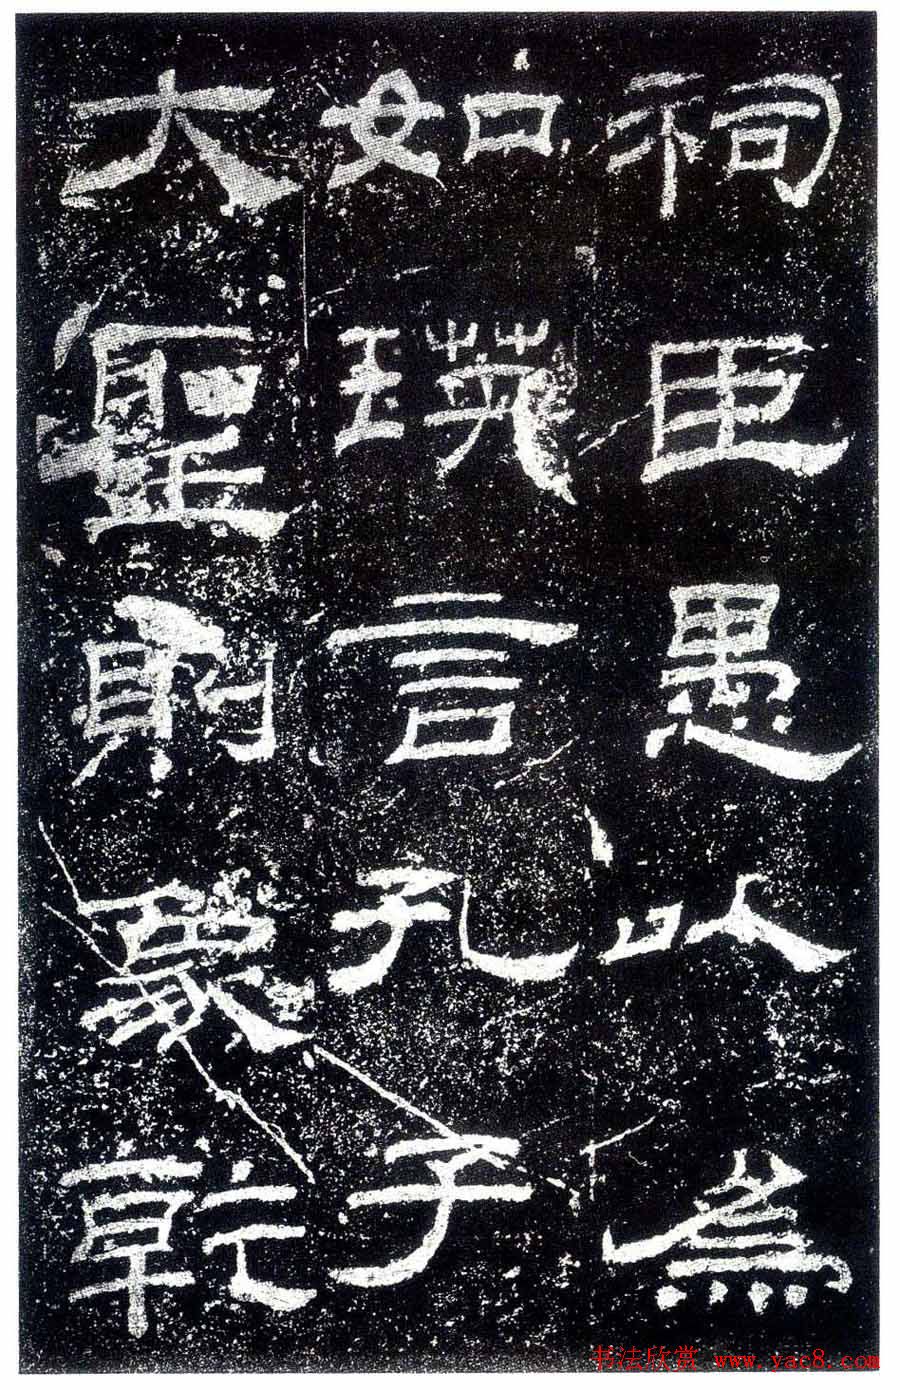 祠臣愚以為
如瑛言孔子
大聖則象乾
书法欣赏 www.yac8.com